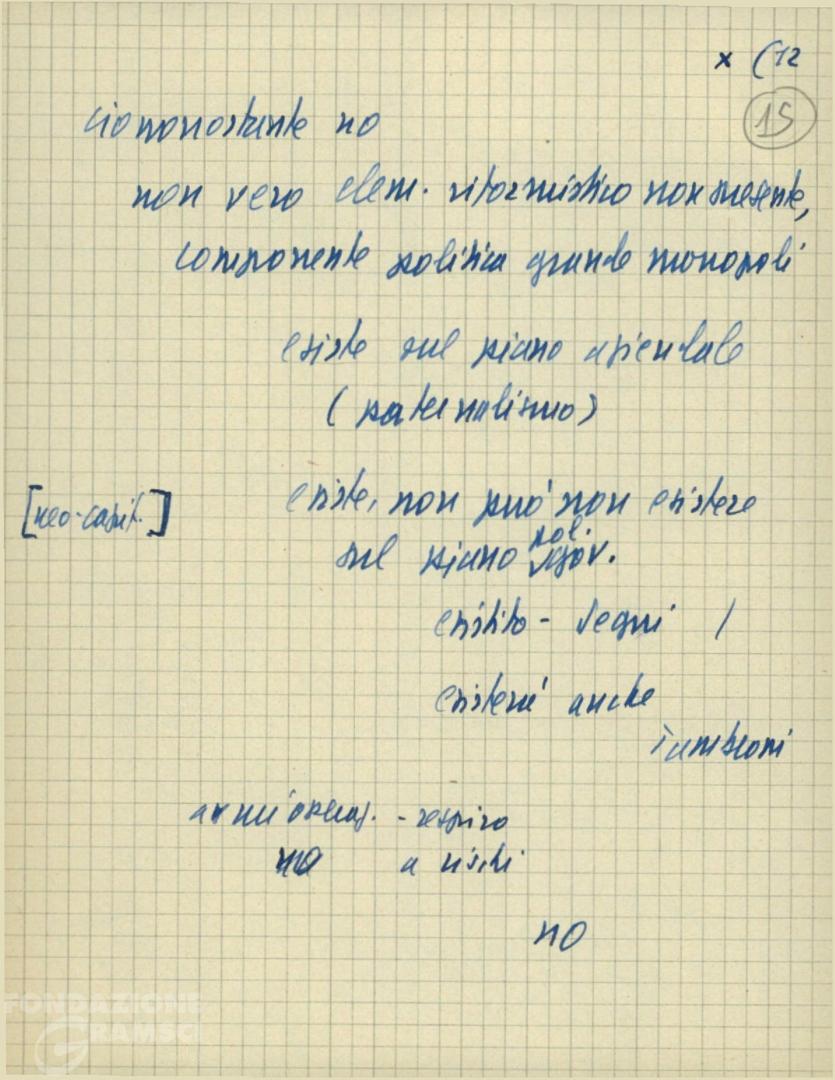 x (12
15
ciononostante no
non vero elem. riformistico non presente,
componente politica grande monopoli
esiste sul piano aziendale
(paternalismo)
[neo-capit.] esiste, non può non esistere
pol.
sul piano gov.
esistito - Segni /
esisterà anche
Tambroni
- respiro
no a
no
FONDAZIONE
GRAMSCI